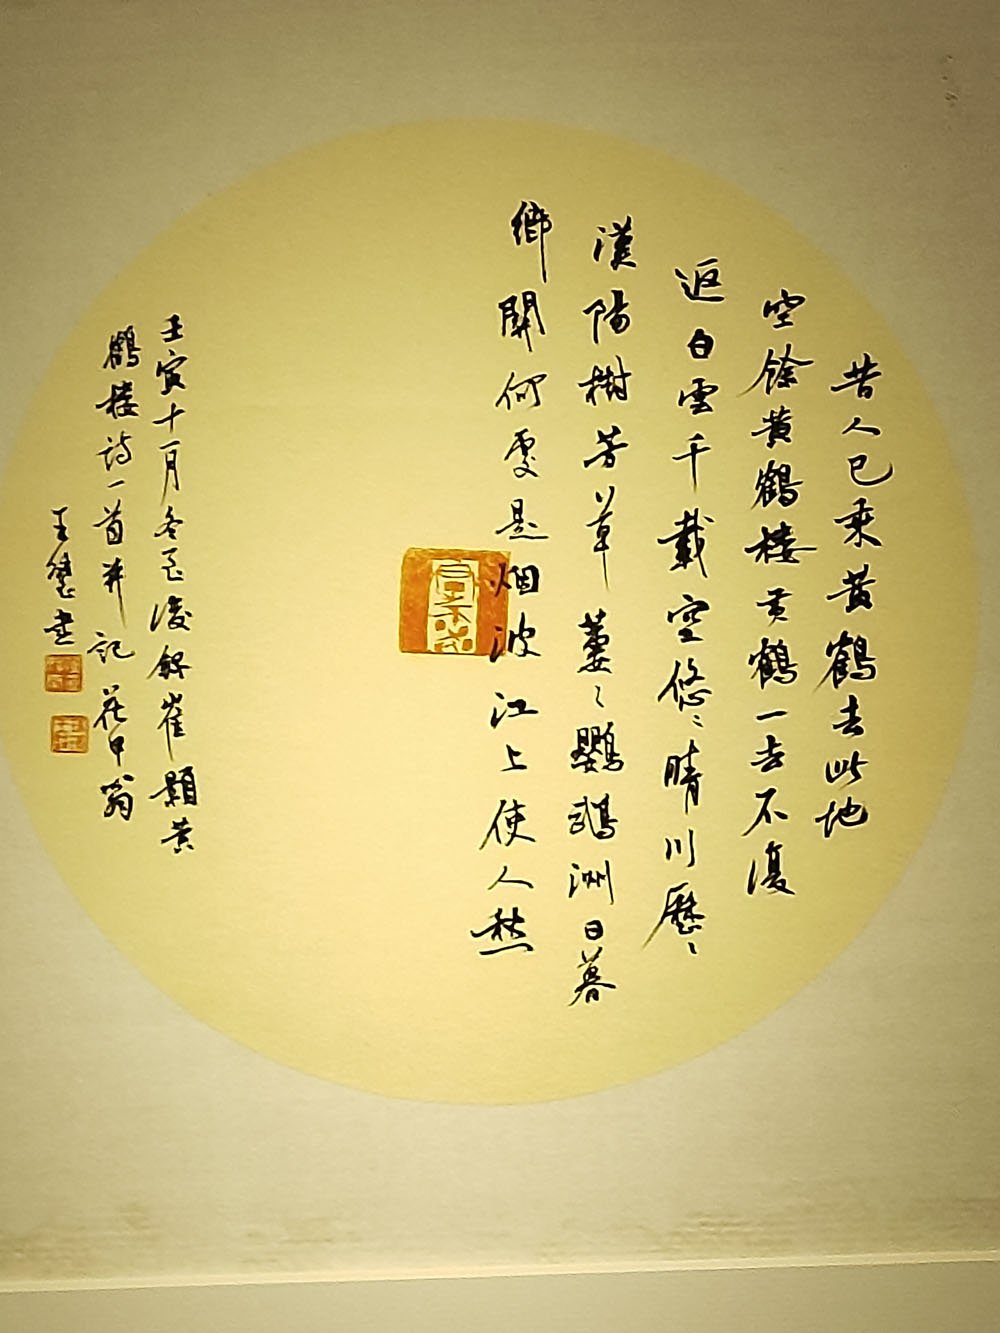 昔人已乘黄鶴去此地
空餘黄鶴楼黄鶴一去不復
返白雲千載空悠〻晴川歷〻
漢陽樹芳草萋〻鸚鵡洲日暮
鄉關何處是烟波江上使人愁
壬寅十一月冬至後錄崔顥黄
鶴楼詩一首并記花甲翁
王書